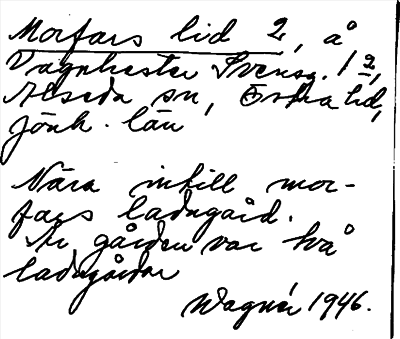 Morfars lid 2, å
Dagnhester Svensg. 1 2,
Alseda sn, Östra hd,
Jönk. län
Nära intill mor-
fars ladugård.
Av gården var två
ladugårdar
Wagnér 1946.